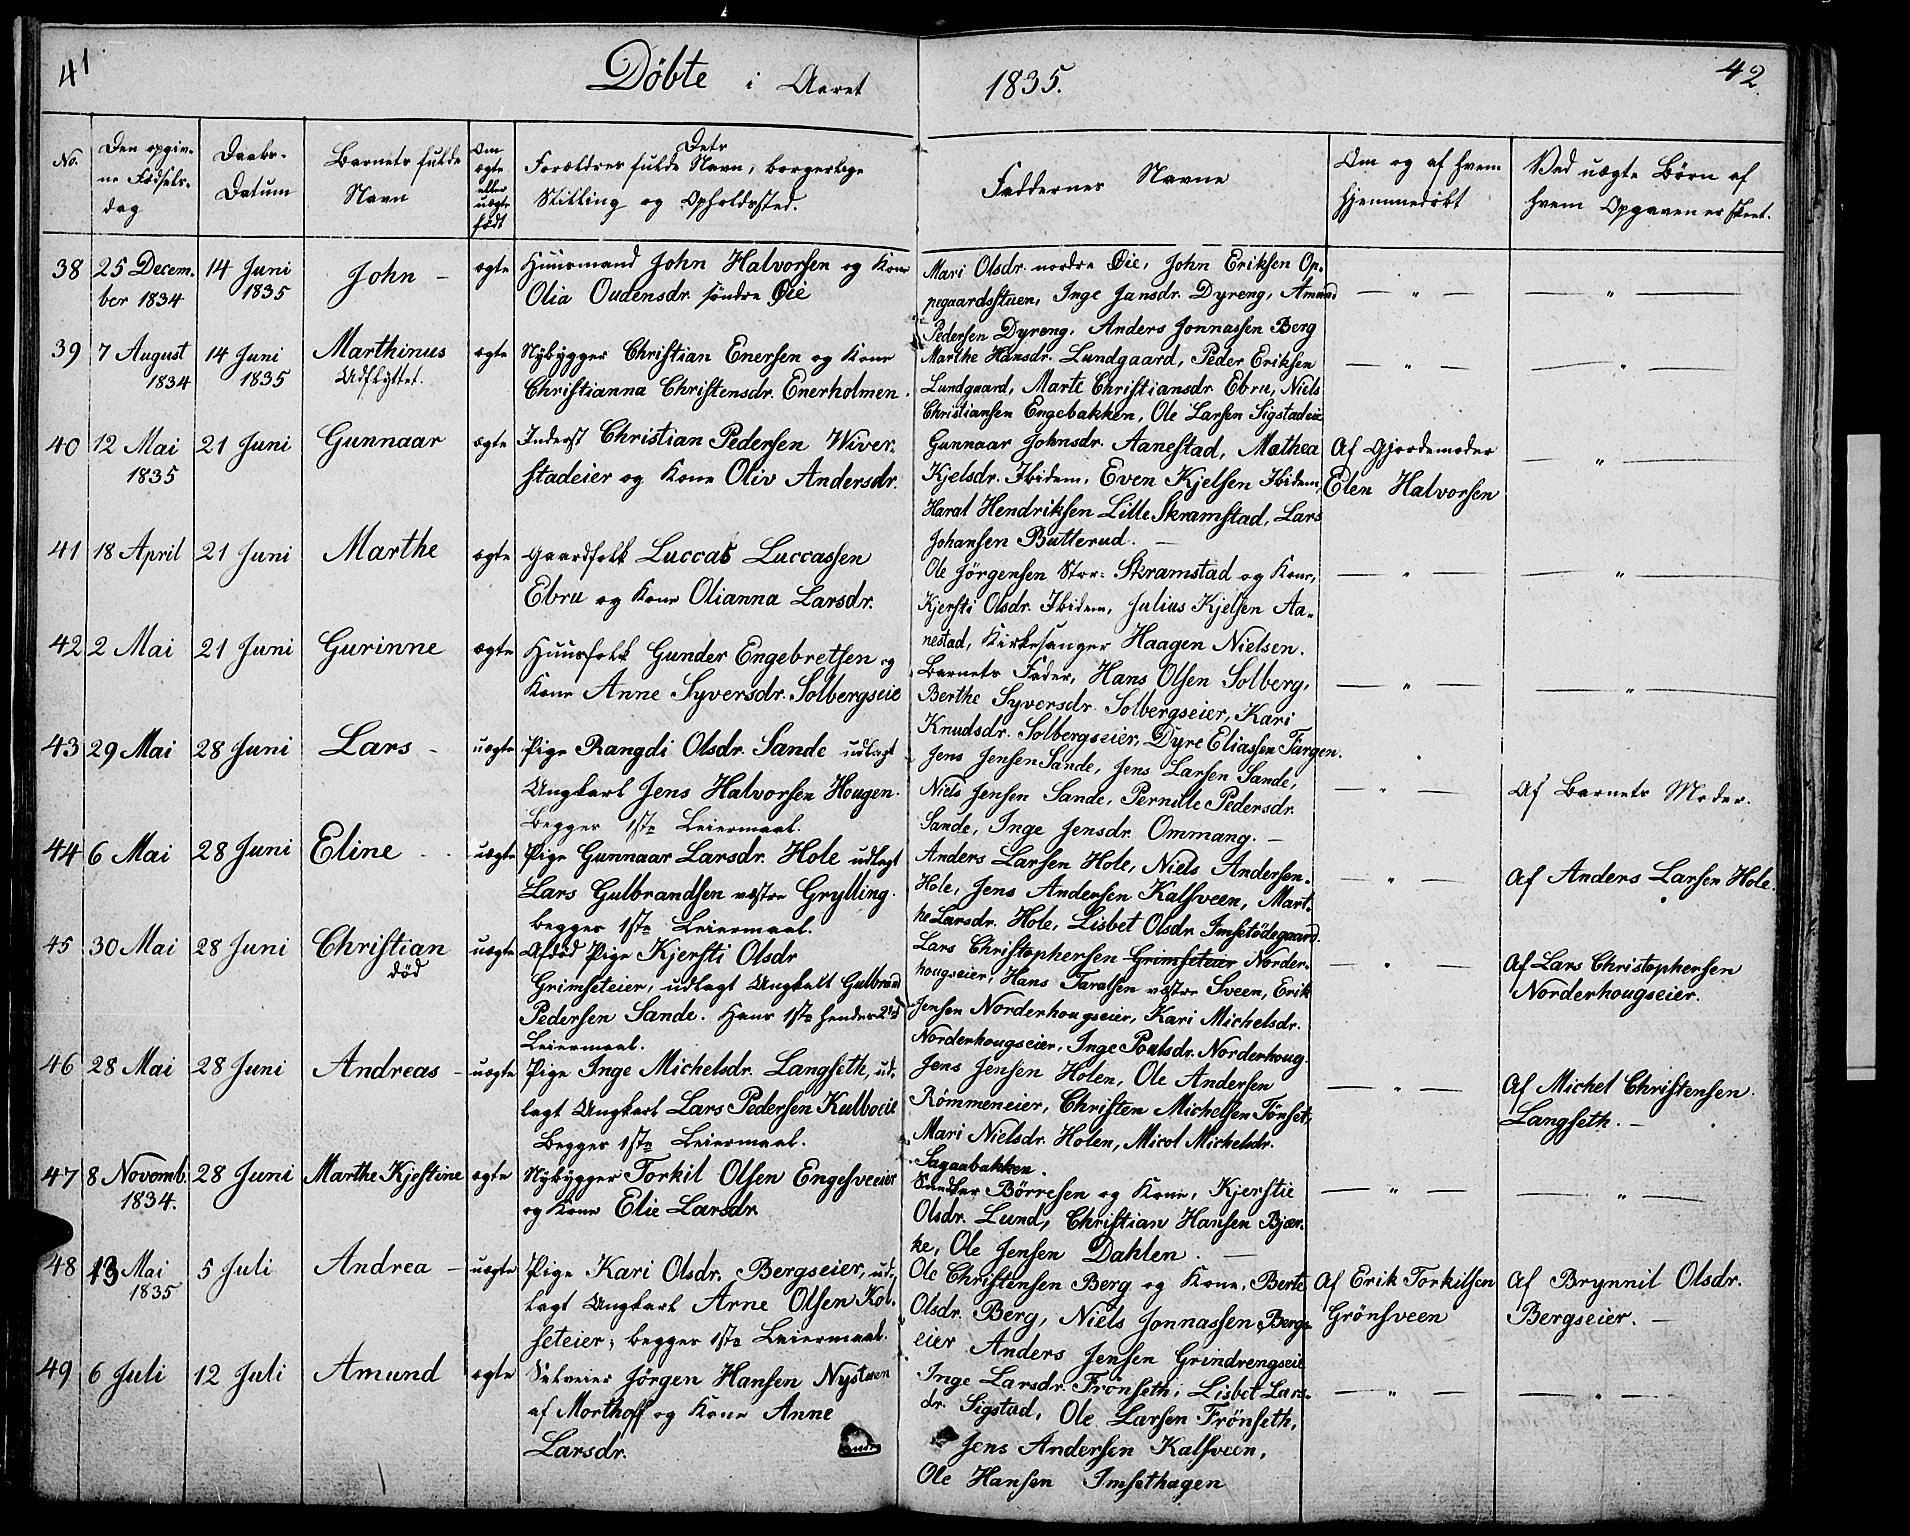 41
Döbte i Aaret 1835.
42.
No.
Den opgiv-
ne Födsels-
dag
Daabs-
Datum
Barnets fulde
Navn
Om
ægte
eller
uægte
född
Dets
Forældres fulde Navn, borgerlige
Stilling og Opholdssted.
Faddernes Navne
Om og af hvem
hjemmedöbt
Ved uægte Börn af
hvem Opgaven er skeet.
38 25 Decem-
ber 1834
14 Juni
1835
John -
ægte
Huusmand John Halvorsen og Kone
Olia Oudensdr. söndre Öie
Mari Olsdr. nordre Öie, John Eriksen Op-
pegaardsstuen, Inge Jansdr. Dyreng, Amund
Pedersen Dyreng, Anders Jonnassen Berg
— " —
— " —
39 7 August
1834
14 Juni
1835
Marthinus
Udflyttet.
ægte
Nybygger Christian Enersen og Kone
Christianna Christensdr. Enerholmen.
Marthe Hansdr. Lundgaard, Peder Eriksen
Lundgaard, Marte Christiansdr Ebru, Niels
Christiansen Engebakken, Ole Larsen Sigstadeie
— " —
— " —
40 12 Mai
1835
21 Juni
Gunnaar
ægte
Inderst Christian Pedersen Wiver-
stadeier og Kone Oliv Andersdr.
Gunnaar Johnsdr. Aanestad, Mathea
Kjelsdr. Ibidem, Even Kjelsen Ibidem,
Haral Hendriksen Lille Skramstad, Lars
Johansen Butterud. —
Af Gjordemoder
Elen Halvorsen
— " —
41 18 April
21 Juni
Marthe
ægte
Gaardfolk Luccas Luccassen
Ebru og Kone Olianna Larsdr.
Ole Jörgensen Stor-Skramstad og Kone,
Kjersti Olsdr. Ibidem, Julius Kjelsen Aa-
nestad, Kirkesanger Haagen Nielsen.
— " —
— " —
42 2 Mai
21 Juni
Gurinne
ægte
Huusfolk Gunder Engebretsen og
Kone Anne Syversdr. Solbergseie
Barnets Fader, Hans Olsen Solberg,
Berthe Syversdr. Solbergseier, Kari
Knudsdr. Solbergseier, Dyre Eliassen Färgen.
— " —
— " —
43 29 Mai
28 Juni
Lars -
uægte
Pige Rangdi Olsdr. Sande udlagt
Ungkarl Jens Halvorsen Hougen.
Begges 1ste Leiermaal.
Jens Jensen Sande, Jens Larsen Sande,
Niels Jensen Sande, Pernille Pedersdr.
Sande, Inge Jensdr. Ommang. —
— " —
Af Barnets Moder.
44 6 Mai
28 Juni
Eline - -
uægte
Pige Gunnaar Larsdr. Hole udlagt
Lars Gulbrandsen vestre Grylling.
begges 1ste Leiermaal.
Anders Larsen Hole, Niels Andersen
Hole, Jens Andersen Kalsveen, Mart-
he Larsdr. Hole, Lisbet Olsdr. Imsetödegaard.
— " —
Af Anders Larsen Hole.
45 30 Mai
28 Juni
Christian
död
uægte
Afdöd Pige Kjersti Olsdr
Grimseteier, udlagt Ungkalt Gulbrand
Pedersen Sande. Hans 1ste hendes 2det
Leiermaal.
Lars Christophersen Grimseteier Norder-
hougseier, Hans Taralsen vestre Sveen, Erik
Jensen Norderhougseier, Kari Michelsdr.
Norderhougseier, Inge Poulsdr. Norderhoug.
— " —
Af Lars Christophersen
Norderhougseier.
46 28 Mai
28 Juni
Andreas -
uægte
Pige Inge Michelsdr. Langseth, ud-
lagt Ungkarl Lars Pedersen Kulboeie
Begges 1ste Leiermaal.
Jens Jensen Holen, Ole Andersen
Römmeneier, Christen Michelsen Tönset,
Mari Nielsdr. Holen, Micol Michelsdr.
Sagaabakken.
— " —
Af Michel Christensen.
Langseth. —
47 8 Novemb.
1834.
28 Juni
Marthe Kjestine
ægte
Nybygger Torkil Olsen Engesveeier
og Kone Elie Larsdr.
Börresen og Kone, Kjerstie
Olsdr. Lund, Christian Hansen Bjær-
ke, Ole Jensen Dahlen. —
— " —
— " —
48 13 Mai
1835
5 Juli
Andrea -
uægte
Pige Kari Olsdr. Bergseier, ud-
lagt Ungkarl Arne Olsen Kol-
seteier, begges 1ste Leiermaal.
Ole Christensen Berg og Kone, Berte
Olsdr. Berg, Niels Jonnassen Bergs-
eier Anders Jensen Grindrengseie
Af Erik Torkilsen
Grönsveen
Af Brynnil Olsdr.
Bergseier. —
49 6 Juli
12 Juli
Amund
ægte
Selveier Jörgen Hansen Nystuen
af Morthoff og Kone Anne
Larsdr.
Inge Larsdr. Frönseth, Lisbet Lars-
dr. Sigstad, Ole Larsen Frönseth,
Jens Andersen Kalsveen,
Ole Hansen Imsethagen
— " —
— " —